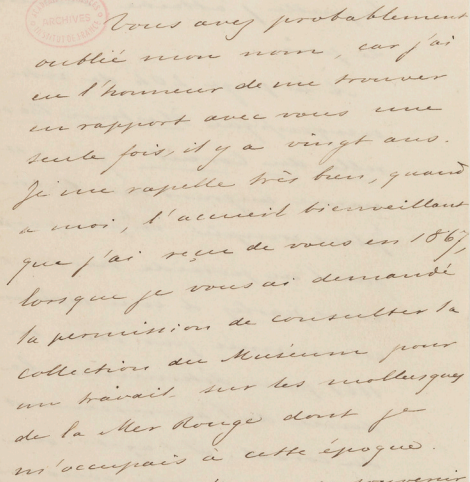 ARCHIVES
Vous avez probablement
oublié mon nom, car j'ai
eu l'honneur de me trouver
en rapport avec vous une
seule fois, il y a vingt ans.
Je me rapelle très bien, quand
a moi, l'accueil bienveillant
que j'ai reçue de vous en 1867,
lorsque je vous ai demandé
la permission de consulter la
collection du Muséum pour
un travail sur les mollusques
de la Mer Rouge dont je
m'occupais à cette époque.
souvenir